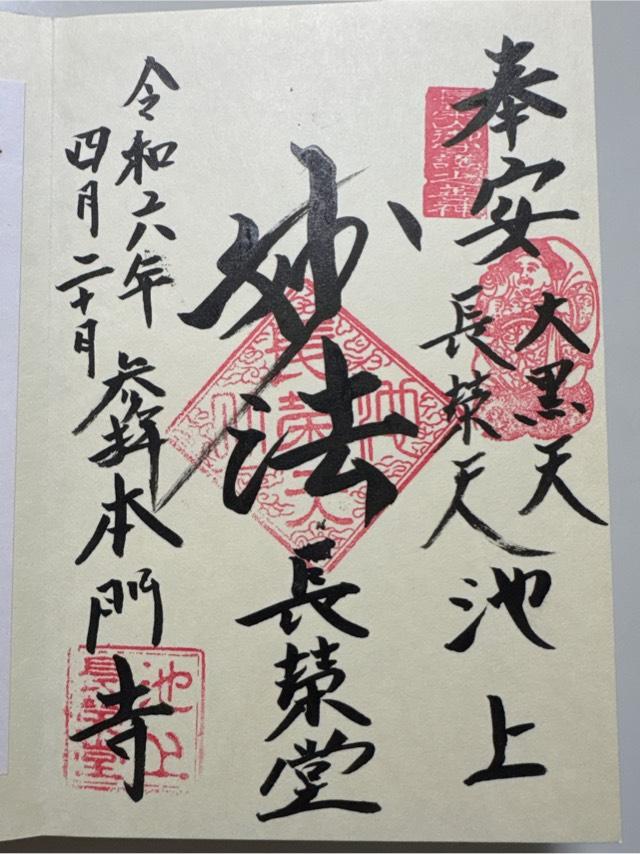 奉安
大黒天
長榮天
池上
妙法
長榮堂
令和六年
四月二十日
参拝
本門寺
池上
長榮堂